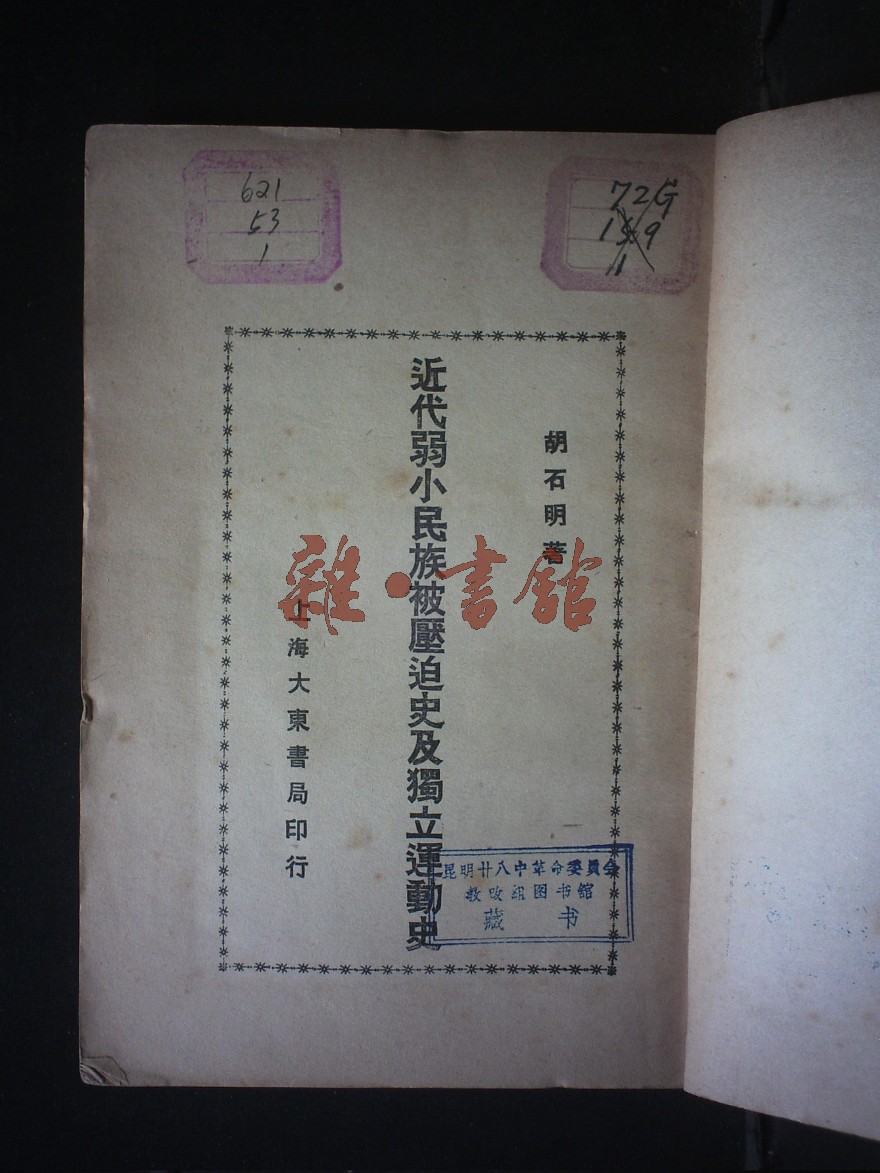 621
53
1
72G
胡石明著
近代弱小民族被壓迫史及獨立運動史
上海大東書局印行
雜·書館
昆明廿八中革命委員会
教改组图书馆
藏书